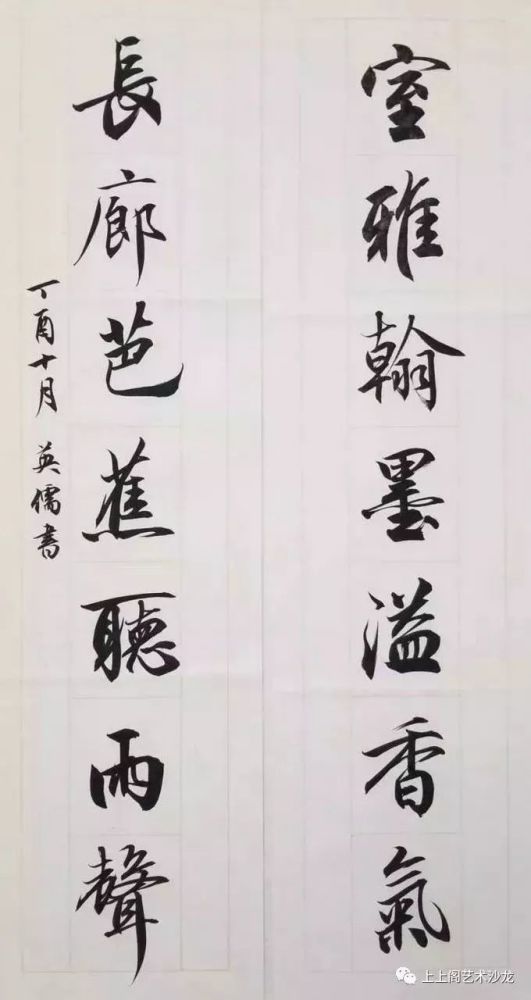 室雅翰墨溢香氣
長廊芭蕉聽雨聲
丁酉十月 英儒書
上上阁艺术沙龙